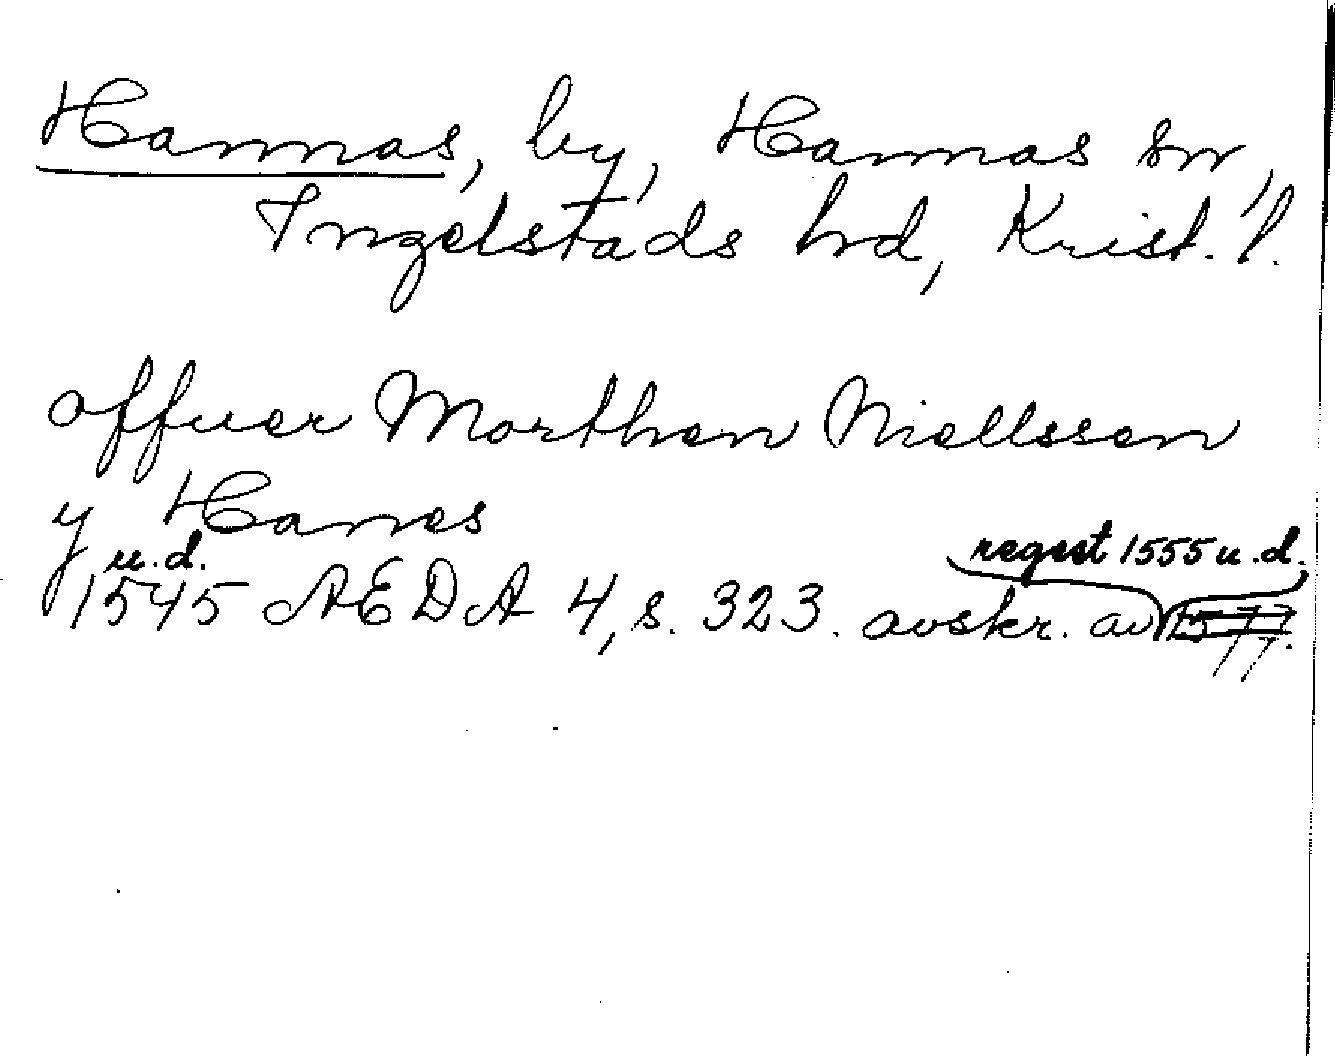 Hannas, by, Hannas sn,
Ingelstads hd, Krist. l.
offuer Morthen Niellssen
y Hanes
u.d. regest 1555 u.d.
1545 AEDA 4, s. 323. avskr. av